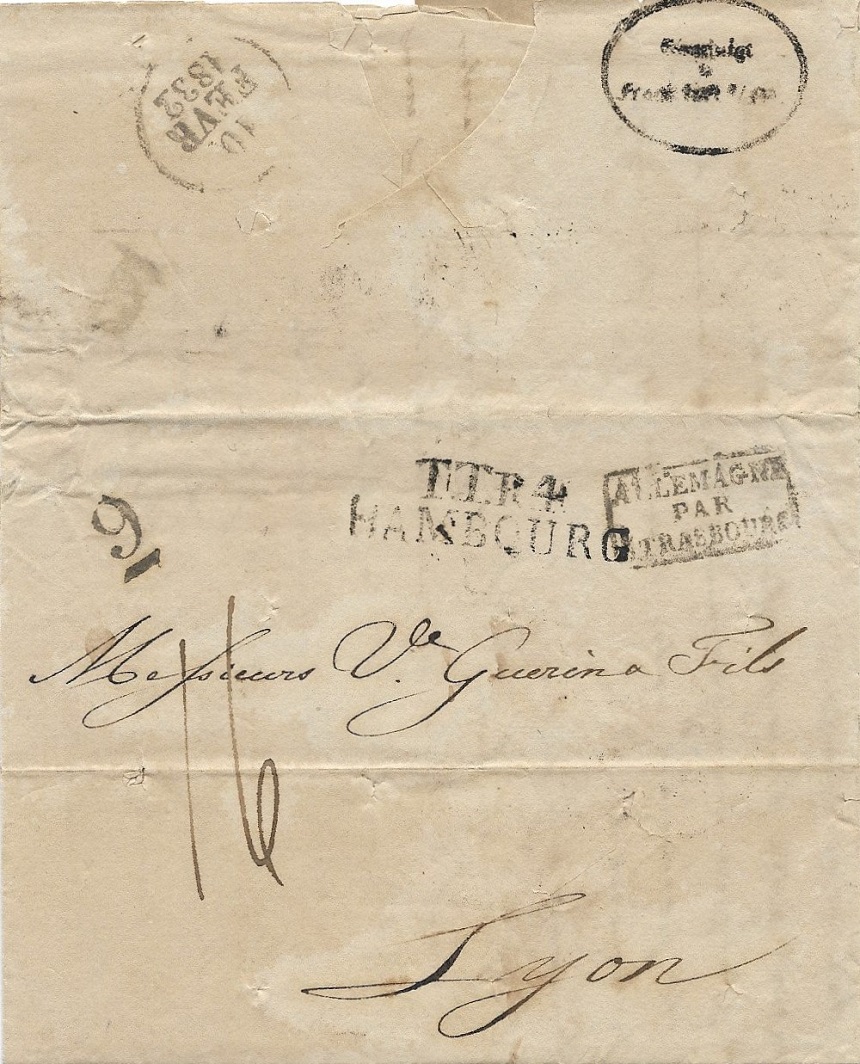 10
FEVR
1832
T.T.R.4
HAMBOURG
ALLEMAGNE
PAR
STRASBOURG
Messieurs Ve. Guerin a Fils
16
Lyon